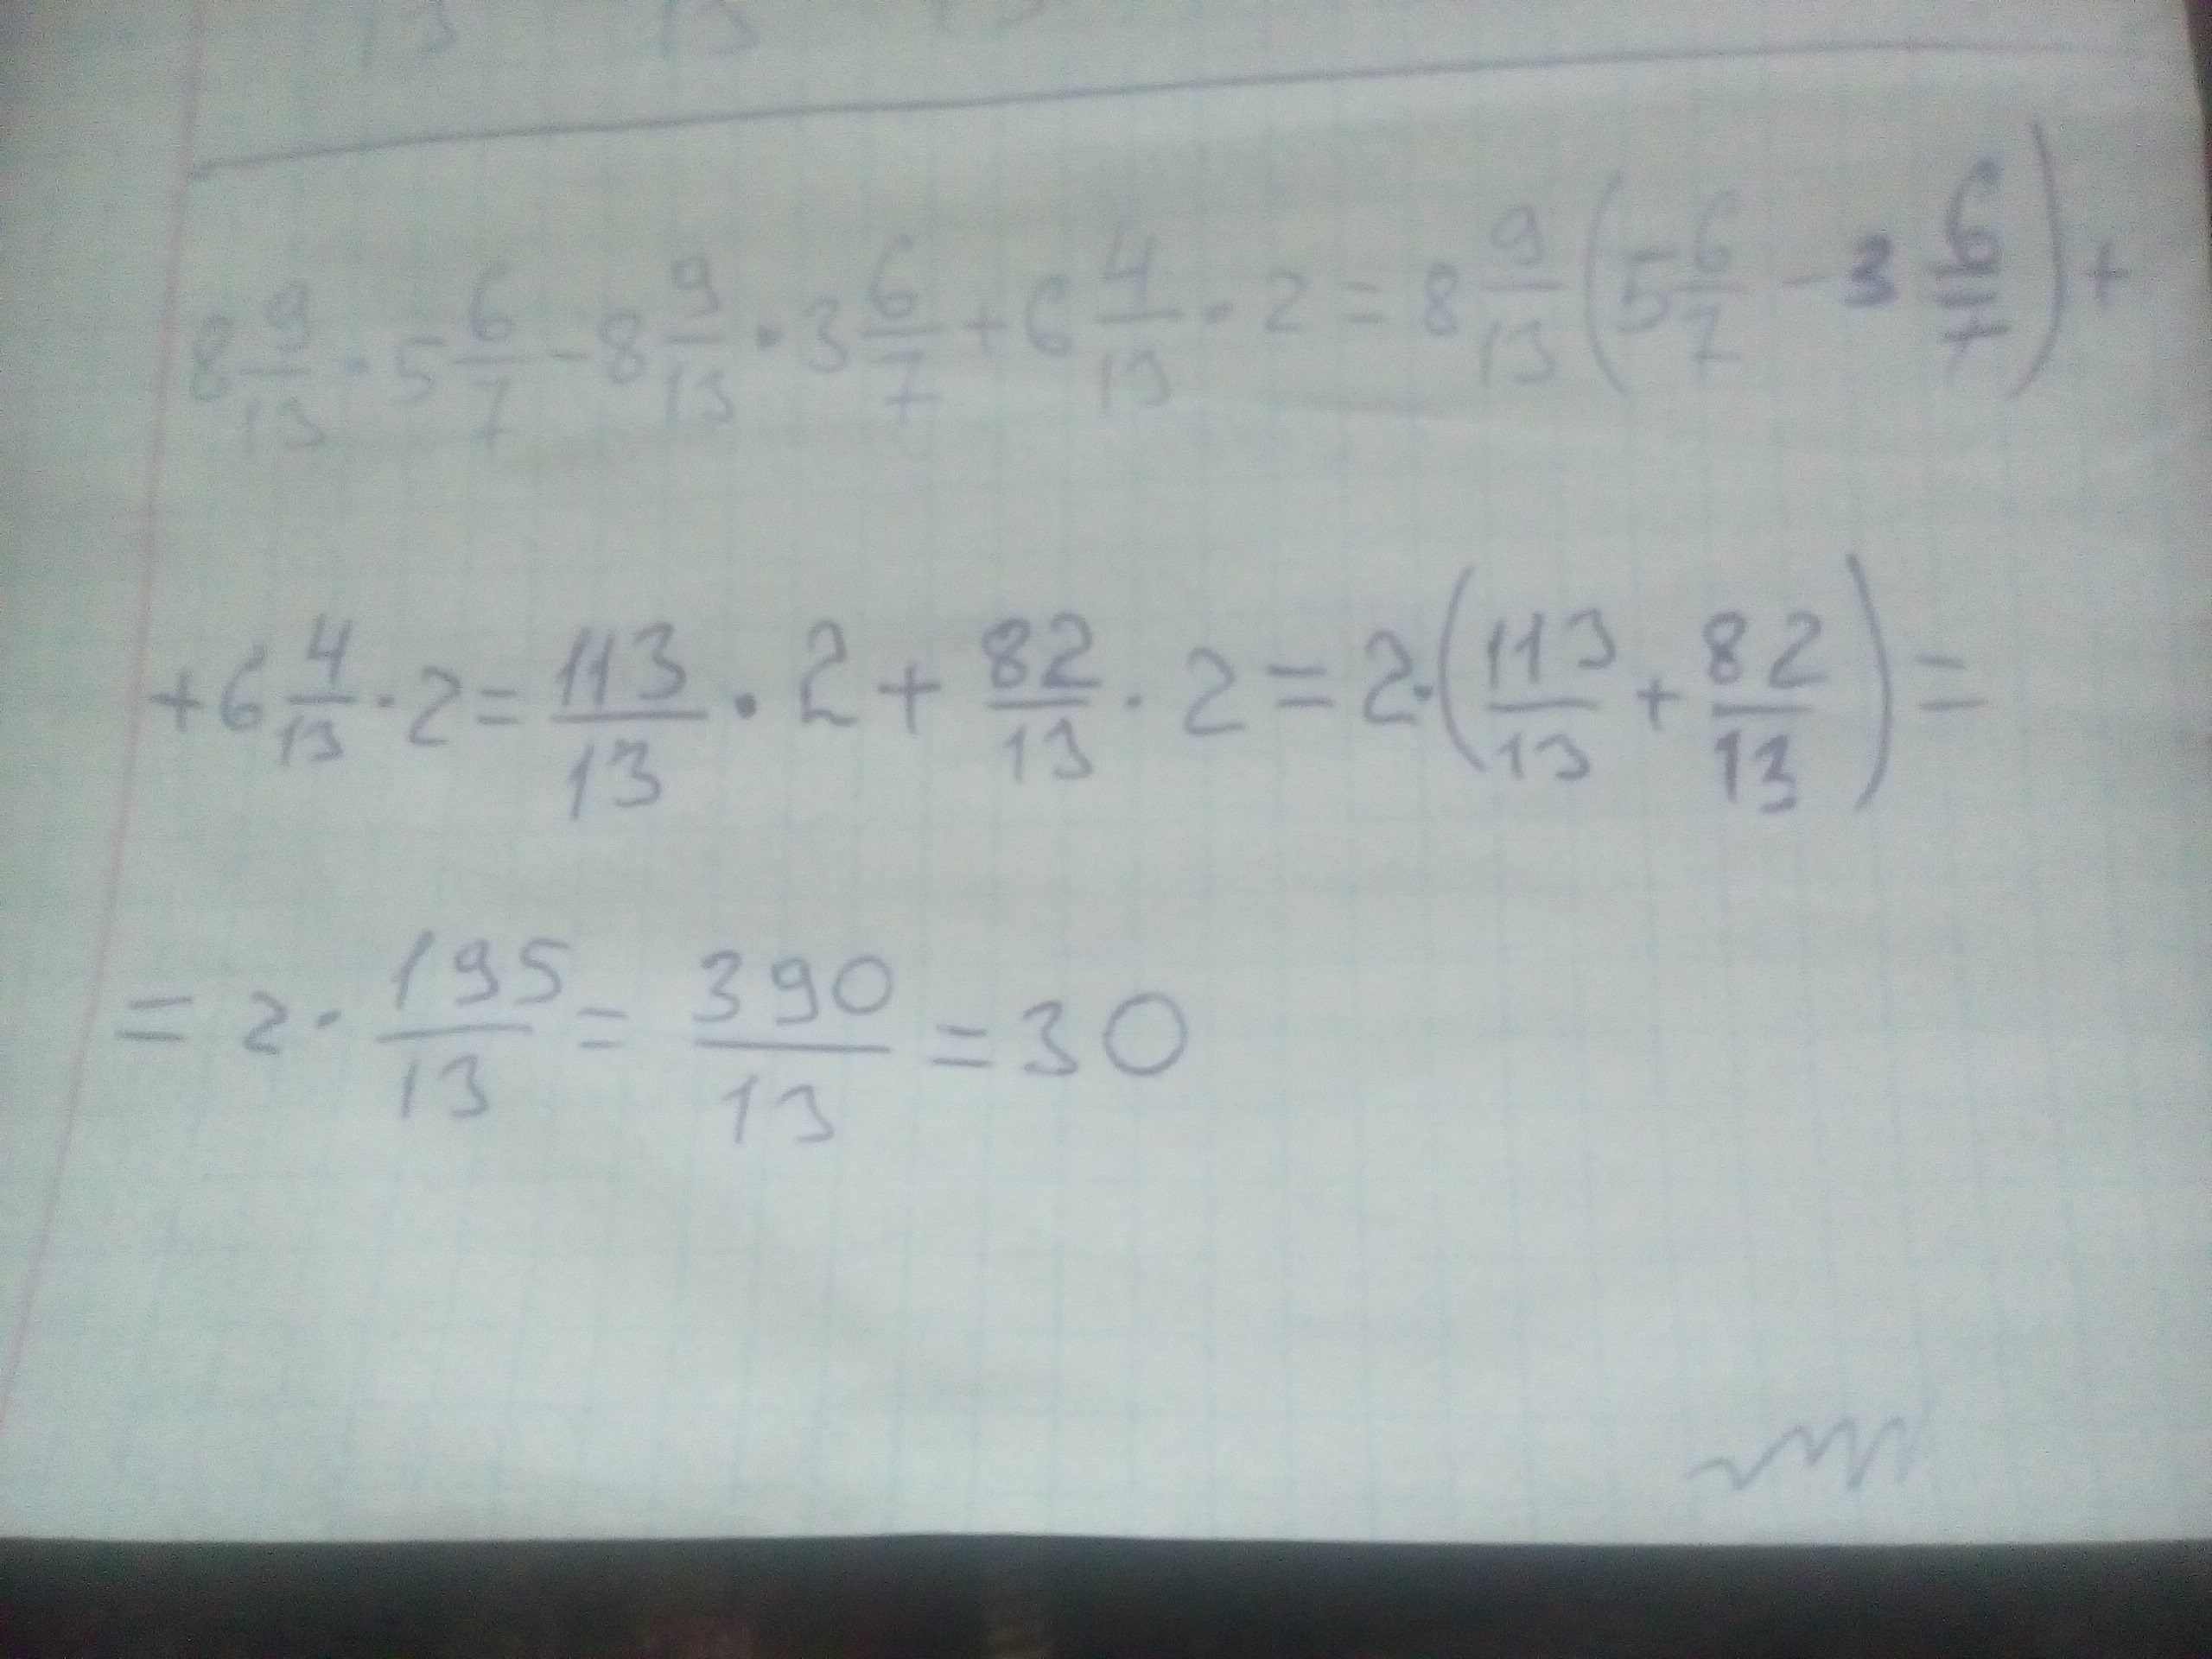 8 9/13 · 5 6/7 - 8 9/13 · 3 6/7 + 6 4/13 · 2 = 8 9/13 (5 6/7 - 3 6/7) +
+ 6 4/13 · 2 = 113/13 · 2 + 82/13 · 2 = 2 · (113/13 + 82/13) =
= 2 · 195/13 = 390/13 = 30